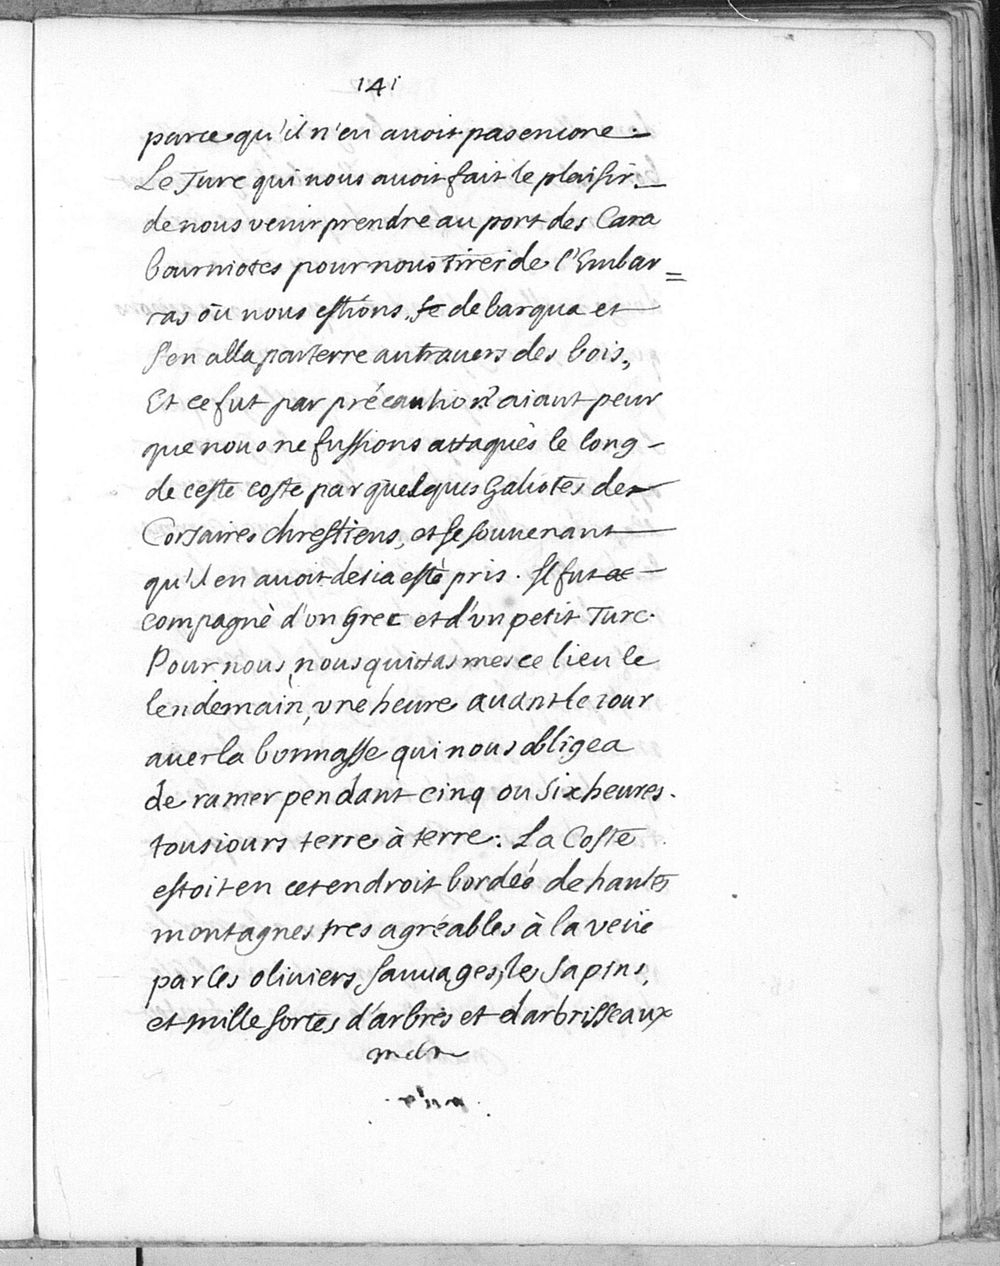 141
parce qu'il n'en auoit pas encore. —
Le Turc qui nous auoit fait le plaisir. —
de nous venir prendre au port des Cara
bourniotes pour nous tirer de l'Embar=
ras où nous estions. se debarqua et —
s'en alla par terre au trauers des bois,
Et ce fut par précaution aiant peur
que nous ne fussions attaqués le long –
de ceste coste par quelques Galiotes de
Corsaires chrestiens, et se souuenant —
qu'il en auoit desia esté pris. Il fut ac —
compagné d'un Grec et d'un petit Turc.
Pour nous, nous quittasmes ce lieu le
lendemain, vne heure auant le iour
auec la bonnasse qui nous obligea
de ramer pendant cinq ou six heures.
tousiours terre à terre. La Coste
estoit en cet endroit bordée de hautes
montagnes tres agréables à la veüe
par les oliuiers sauuages, les sapins,
et mille sortes d'arbres et d'arbrisseaux